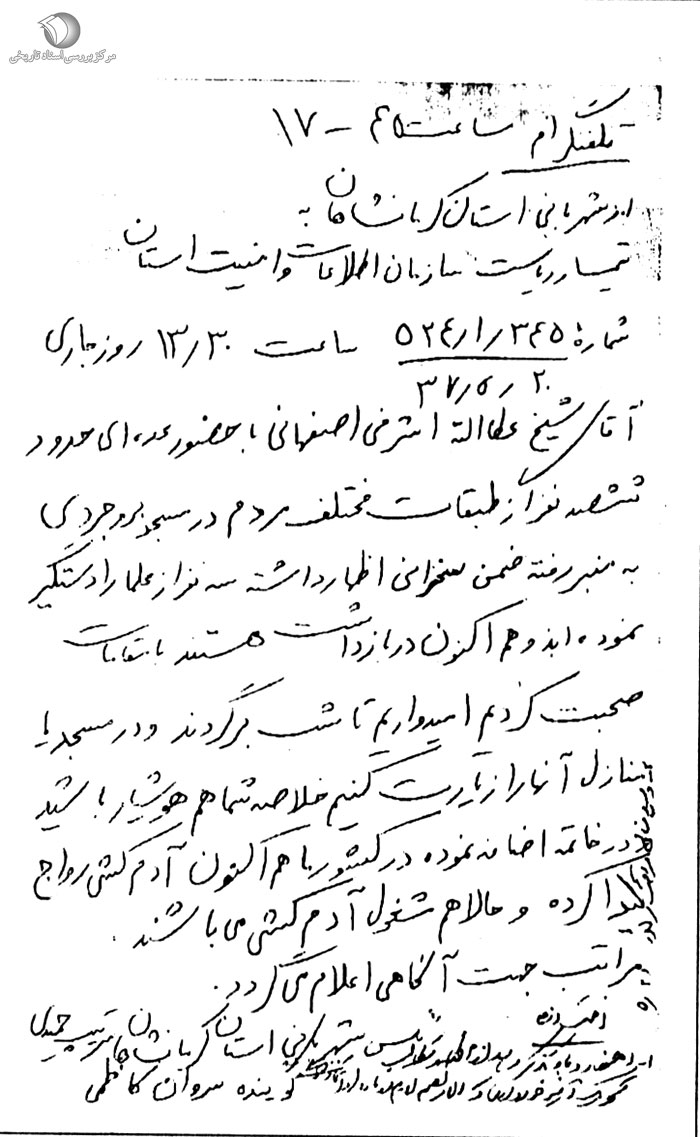 مرکز بررسی اسناد تاریخی
تلفنگرام ساعت ۴۵ – ۱۷
از شهربانی استان کرمانشاهان به
تیمسار ریاست سازمان اطلاعات و امنیت استان
شمارهٔ ۵۲۴/۱/۳۴۵ ساعت ۱۳/۳۰ روز جاری
۳۷/۵/۲۰
آقای شیخ عطاالله اشرفی اصفهانی با حضور عده‌ای حدود
ششصد نفر از طبقات مختلف مردم در مسجد بروجردی
به منبر رفته ضمن سخنرانی اظهار داشته سه نفر از علما را دستگیر
نموده‌اند و هم اکنون در بازداشت هستند با مقامات
صحبت کردیم امیدواریم تا شب برگردند و در مسجد یا
منازل آنها را زیارت کنیم خلاصه شما هم هوشیار باشید
در خاتمه اضافه نموده در کشور ما هم اکنون آدم کشی رواج
پیدا کرده و حالا هم مشغول آدم کشی می باشند.
مراتب جهت آگاهی اعلام می گردد.
رئیس شهربانی استان کرمانشاهان سرتیپ
گوینده سروان کاظمی